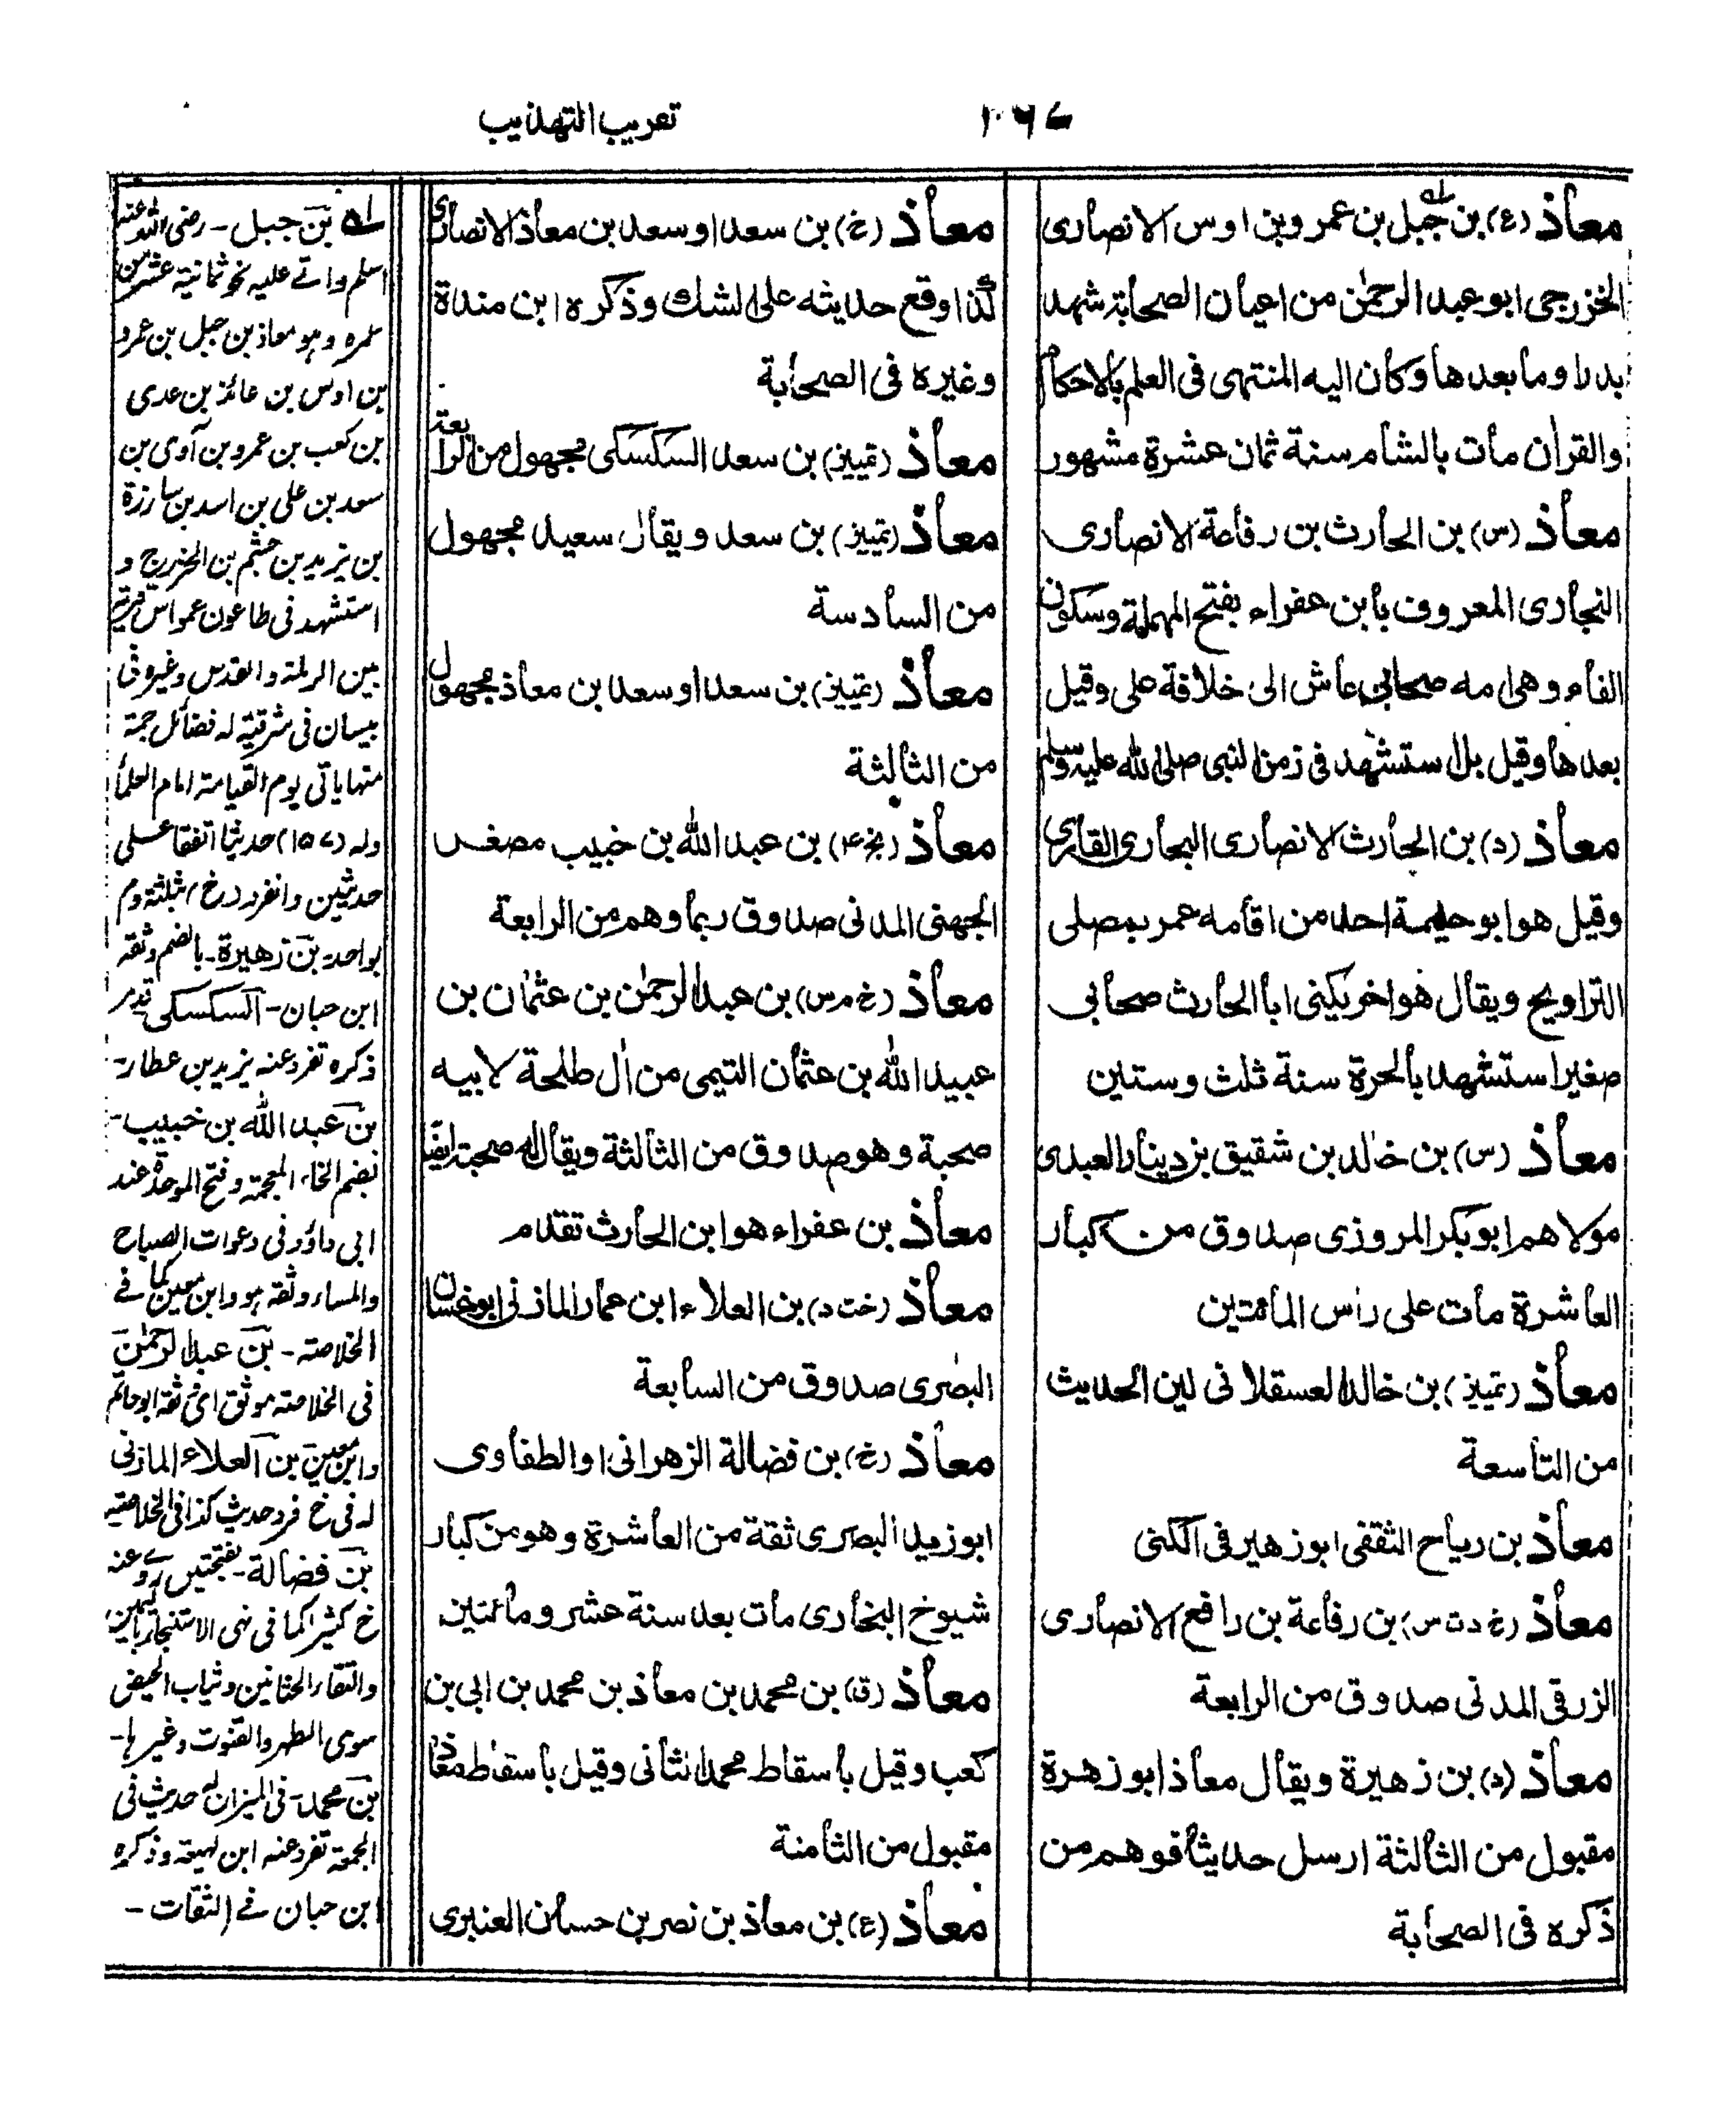 تعريب التهذيب
معاذ (ع) بن جبل بن عمرو بن اوس الانصاری
الخزرجی ابو عبد الرحمٰن من اعيان الصحابة شهد
بدرا وما بعدها وكان اليه المنتهی فی العلم بالاحكام
والقراٰن مات بالشام سنة ثمان عشرة مشهور
معاذ (س) بن الحارث بن رفاعة الانصاری
النجاری المعروف بابن عفراء بفتح المهملة وسكون
الفاء وهی امه صحابی عاش الی خلافة علی وقيل
بعدها وقيل بل استشهد فی زمن النبی صلی الله عليه وسلم
معاذ (د) بن الحارث الانصاری البخاری القاری
وقيل هو ابو حليمة احد من اقامه عمر بمصلی
التراويح ويقال هو اخر يكنی ابا الحارث صحابی
صغير استشهد بالحرة سنة ثلث وستين
معاذ (س) بن خالد بن شقيق بن دينار العبدی
مولاهم ابو بكر المروزی صدوق من كبار
العاشرة مات علی راس المائتين
معاذ (تمييز) بن خالد العسقلانی لين الحديث
من التاسعة
معاذ بن رياح الثقفی ابو زهير فی الكنی
معاذ (خ د ت س) بن رفاعة بن رافع الانصاری
الزرقی المدنی صدوق من الرابعة
معاذ (د) بن زهيرة ويقال معاذ ابو زهرة
مقبول من الثالثة ارسل حديثا فوهم من
ذكره فی الصحابة
معاذ (خ) بن سعد او سعد بن معاذ الانصاری
كذا وقع حديثه علی الشك وذكره ابن مندة
وغيره فی الصحابة
معاذ (تمييز) بن سعد السكسكی مجهول من الرابعة
معاذ (تمييز) بن سعد ويقال سعيد مجهول
من السادسة
معاذ (تمييز) بن سعد او سعد بن معاذ مجهول
من الثالثة
معاذ (بخ ۴) بن عبد الله بن خبيب مصغر
الجهنی المدنی صدوق ربما وهم من الرابعة
معاذ (خ م س) بن عبد الرحمٰن بن عثمان بن
عبيد الله بن عثمان التيمی من اٰل طلحة لابيه
صحبة وهو صدوق من الثالثة ويقال له صحبة ايضا
معاذ بن عفراء هو ابن الحارث تقدم
معاذ (خت د) بن العلاء ابن عمار المازنی ابو غسان
البصری صدوق من السابعة
معاذ (خ) بن فضالة الزهرانی او الطفاوی
ابو زيد البصری ثقة من العاشرة وهو من كبار
شيوخ البخاری مات بعد سنة عشر ومائتين
معاذ (ق) بن محمد بن معاذ بن محمد بن ابی بن
كعب وقيل باسقاط محمد الثانی وقيل باسقاط معاذ
مقبول من الثامنة
معاذ (ع) بن معاذ بن نصر بن حسان العنبری
له بن جبل - رضی الله عنه
اسلم واتے عليه نحو ثمانية عشر من
عمره وهو معاذ بن جبل بن عمرو
بن اوس بن عائذ بن عدی
بن كعب بن عمرو بن آوی بن
سعد بن علی بن اسد بن ساردة
بن يزيد بن جشم بن الخزرج و
استشهد فی طاعون عمواس قرية
بين الرملة والقدس وغيره فی
بيسان فی شرقية له فضائل جمة
منها ياتی يوم القيامة امام العلماء
وله (۱۵۷) حديثا اتفقا علی
حديثين وانفرد (خ) بثلثة وم
بواحد بن زهيرة - بالضم وثقه
ابن حبان - السكسكی قدم
ذكره تفرد عنه يزيد بن عطار -
بن عبد الله بن خبيب -
بضم الخاء المعجمة وفتح الموحدة عند
ابی داؤد فی دعوات الصباح
والمساء وثقه هو وابن معين كما فے
الخلاصة - بن عبد الرحمٰن
فی الخلاصة موثق ای ثقة ابو حاتم
وابن معين بن العلاء المازنی
له فی خ فرد حديث كذا فی الخلاصة
بن فضالة - بفتحتين روی عنه
خ كثيرا كما فی نهی الاستنجاء باليمين
والتقاء الختانين وثياب الحيض
سوی الطهر والقنوت وغيرها -
بن محمد - فی الميزان له حديث فی
الجمعة تفرد عنه ابن لهيعة وذكره
ابن حبان فے الثقات -